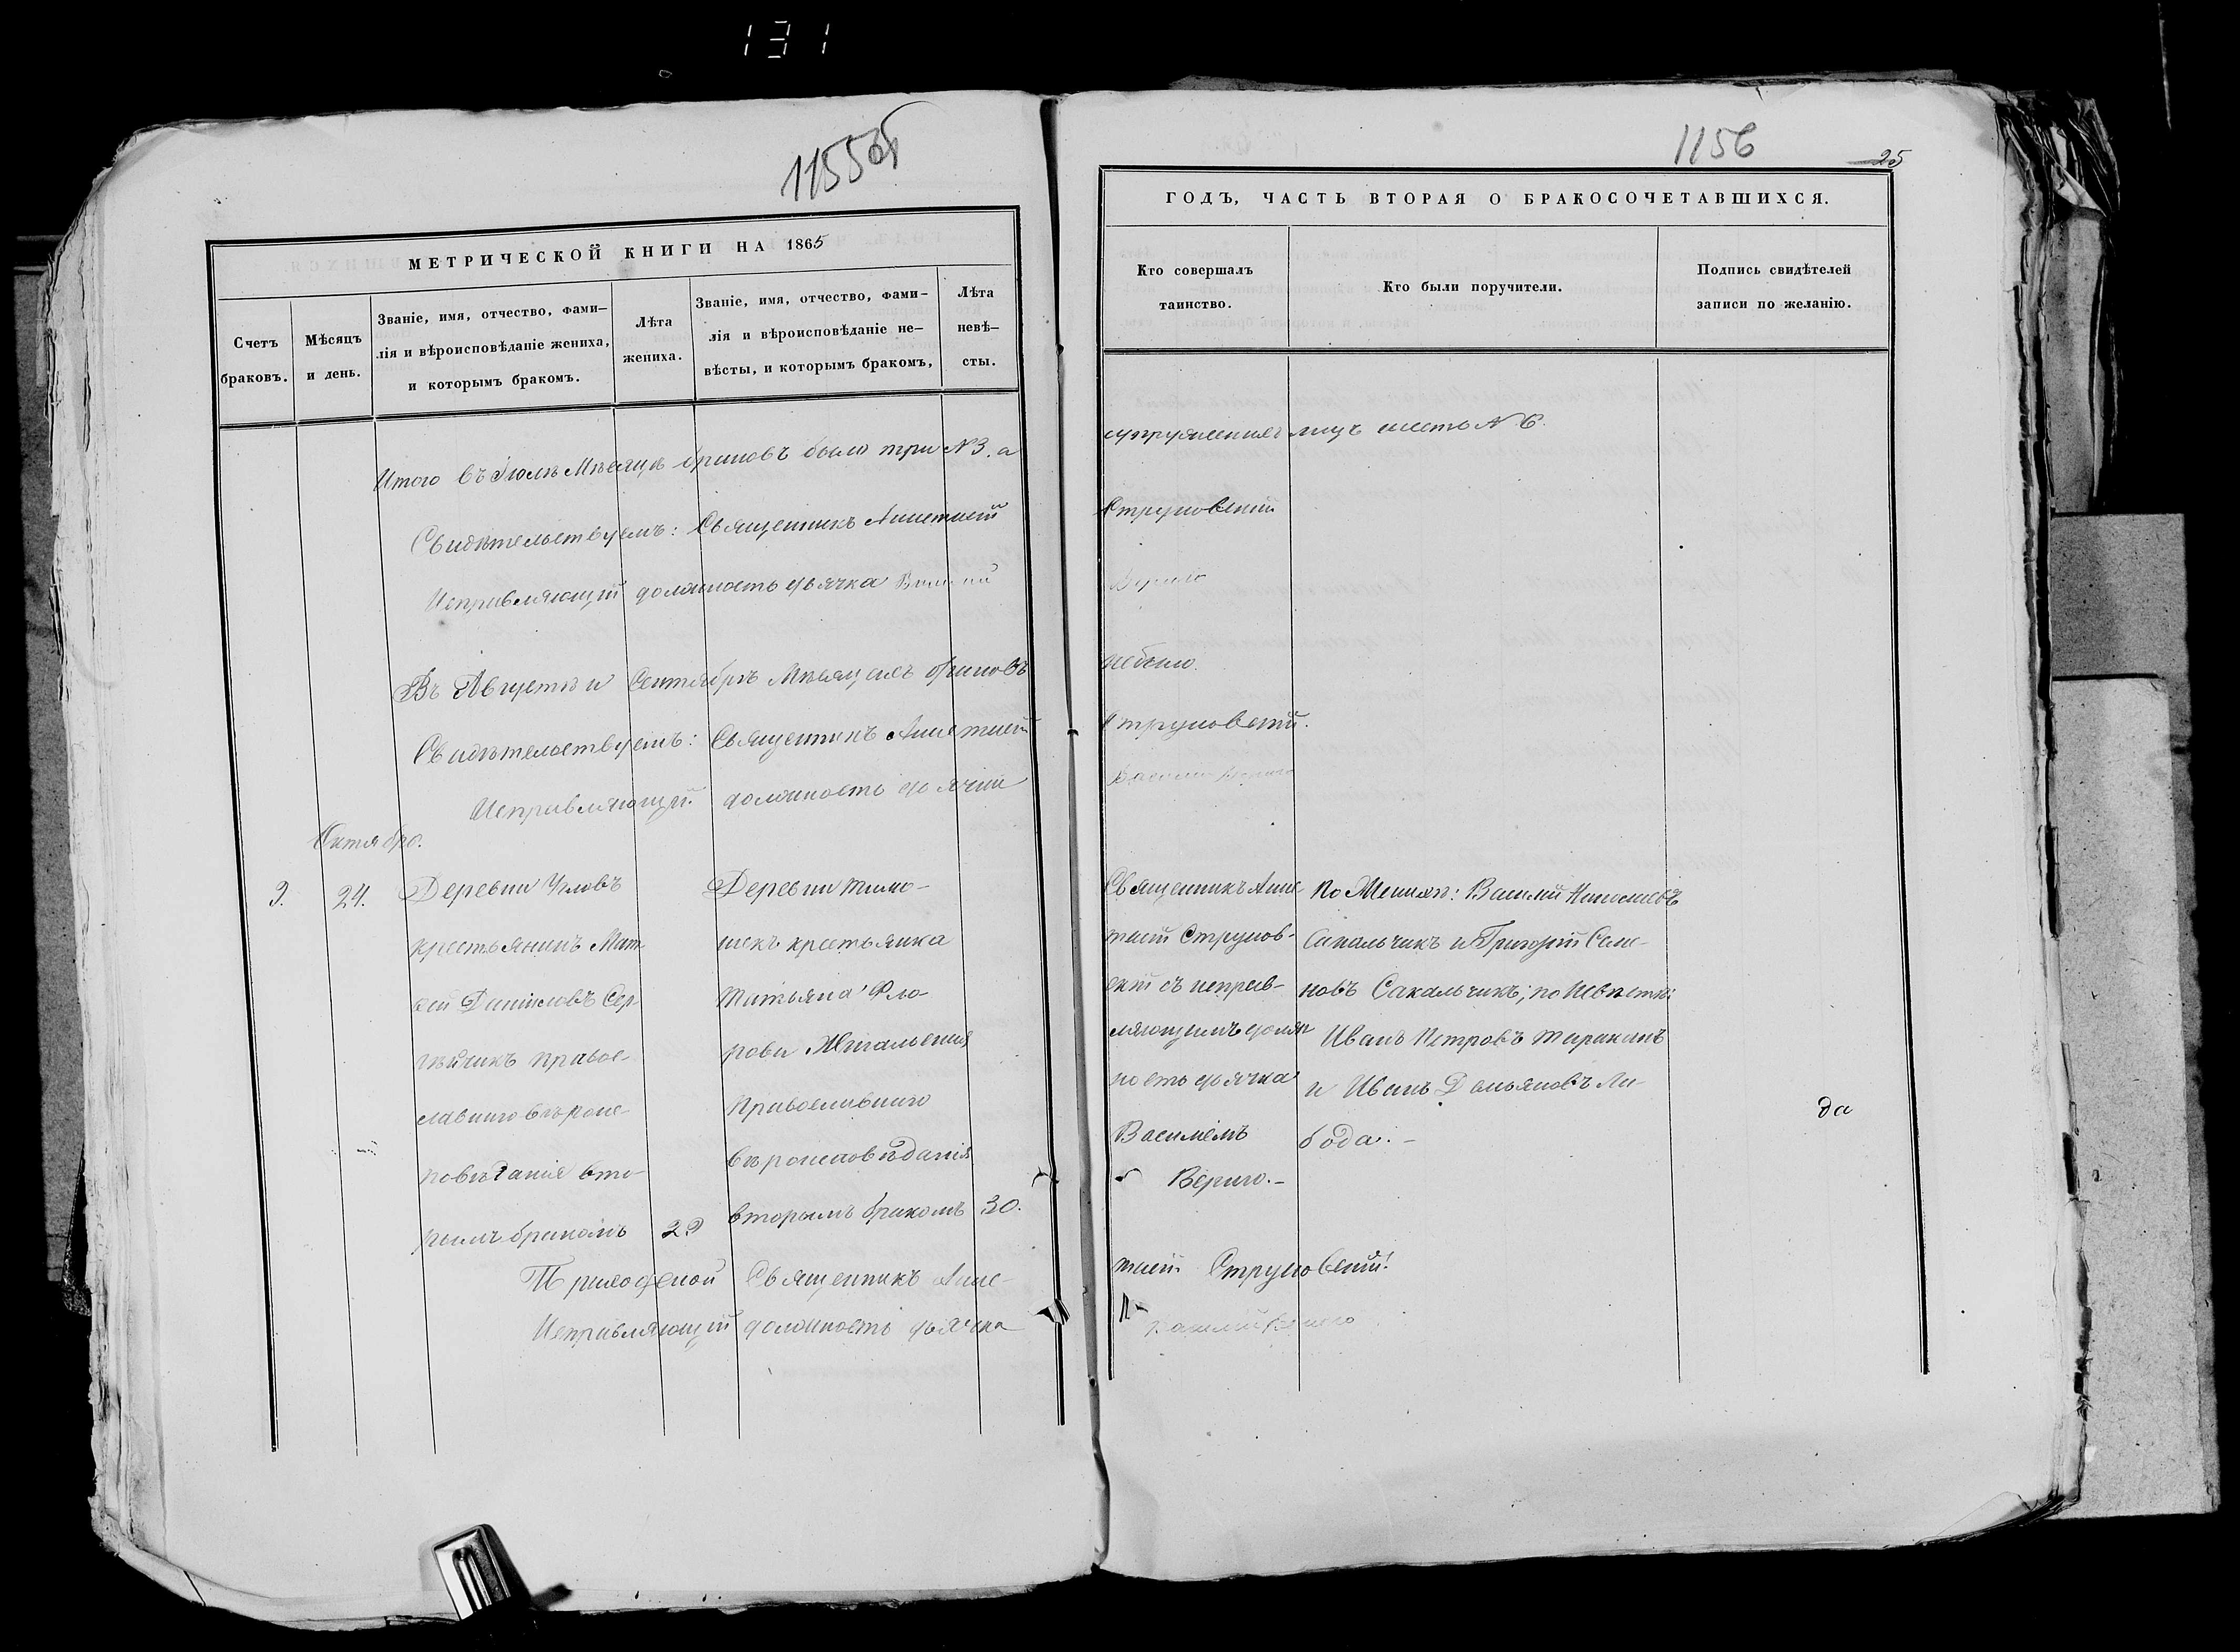 131
1155об
МЕТРИЧЕСКОЙ КНИГИ НА 1865
Счетъ браковъ.
Мѣсяцъ и день.
Званіе, имя, отчество, фами-
лія и вѣроисповѣданіе жениха,
и которымъ бракомъ.
Лѣта
жениха.
Званіе, имя, отчество, фами-
лія и вѣроисповѣданіе не-
вѣсты, и которымъ бракомъ,
Лѣта
невѣ-
сты.
Итого въ Іюлѣ Мѣсяцѣ браковъ было три №3. а
Свидѣтельствуемъ: Священникъ
Исправляющій должность дьячка Василій
Въ Августѣ и Сентябрѣ Мѣсяцахъ браковъ
Свидѣтельствуемъ: Священникъ
Исправляющій должность дьячка
Октябрь.
9.
24.
Деревни
крестьянинъ Мат
ѳей Даниловъ Сер
православ-
славнаго вѣроис-
повѣданія вто-
рымъ бракомъ
29
Деревни Тимо-
шекъ крестьянка
Татьяна Фло-
рова
Православнаго
вѣроисповѣданія
вторымъ бракомъ
30.
Священникъ
Исправляющій должность дьячка
1156
25
ГОДЪ, ЧАСТЬ ВТОРАЯ О БРАКОСОЧЕТАВШИХСЯ.
Кто совершалъ
таинство.
Кто были поручители.
Подпись свидѣтелей
записи по желанію.
лицъ шесть № 6.
Струковскій
Вериго
небыло.
Струковскій.
Василій Вериго
Священникъ
Струков-
скій съ исправ-
ляющимъ долж
ность дьячка
Василіемъ
Вериго.-
По Женихѣ: Василій Николаевъ
Сакальчикъ и Григорій Семе-
новъ Сакальчикъ; по Невѣстѣ:
Иванъ Петровъ Тараканъ
и Иванъ Демьяновъ Ли-
бода.-
да
Струковскій.
Василій Вериго